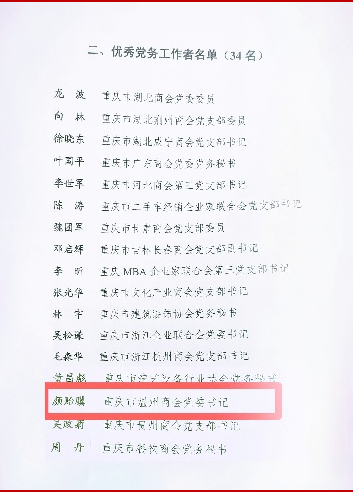 二、优秀党务工作者名单（34名）
龙 波 重庆市湖北商会党委委员
向 林 重庆市湖北荆州商会党支部委员
徐晓东 重庆市湖北咸宁商会党支部书记
叶国平 重庆市广东商会党委党务秘书
李世军 重庆市河北商会第二党支部书记
陈 涛 重庆市二手车经销企业家联合会党支部书记
魏团军 重庆市甘肃商会党支部委员
邓启辉 重庆市吉林长春商会党支部副书记
李 昕 重庆MBA企业家联合会第三党支部书记
张光华 重庆市文化产业商会党支部书记
林 作 重庆市建筑装饰协会党务秘书
吴松谦 重庆市浙江企业联合会党委书记
毛森华 重庆市浙江杭州商会党支部书记
黄昌彪
颜贻骥 重庆市温州商会党委书记
重庆市衢州商会党支部书记
周 丹 重庆市餐饮商会党务秘书